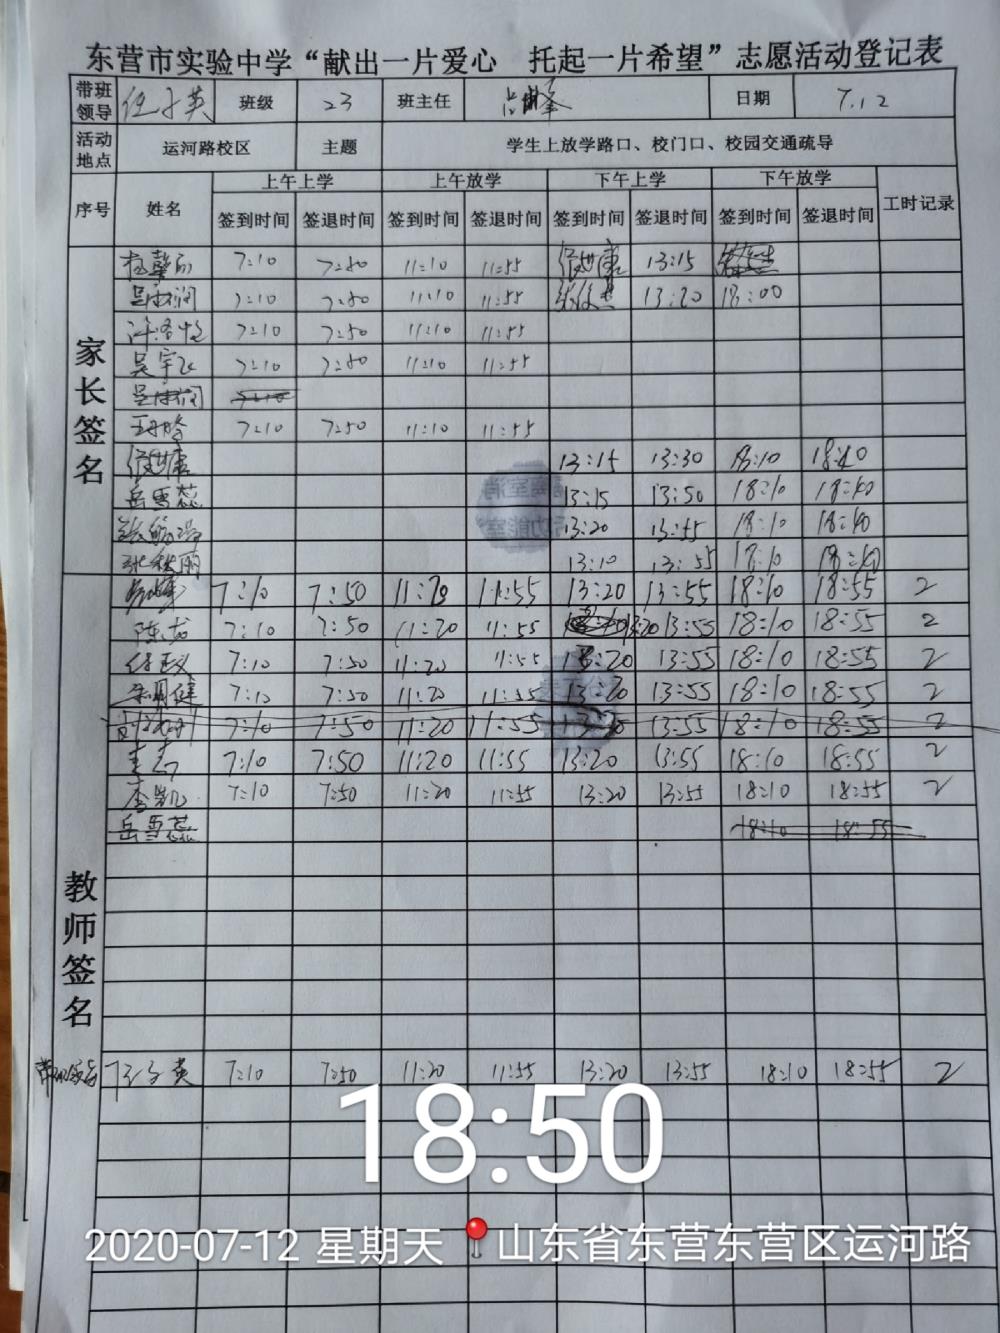 东营市实验中学“献出一片爱心 托起一片希望”志愿活动登记表
带班领导 任子英 班级 23 班主任 日期 7.12
活动地点 运河路校区 主题 学生上放学路口、校门口、校园交通疏导
序号 姓名 上午上学 上午放学 下午上学 下午放学 工时记录
签到时间 签退时间 签到时间 签退时间 签到时间 签退时间 签到时间 签退时间
家长签名
7:10 7:50 11:10 11:55 13:15
7:10 7:50 11:10 11:55 13:20 18:00
7:10 7:50 11:10 11:55
吴宇飞 7:10 7:50 11:10 11:55
7:10
7:10 7:50 11:10 11:55
13:15 13:30 18:10 18:40
岳雪蕊 13:15 13:50 18:10 18:40
13:20 13:55 18:10 18:40
张秋丽 13:10 13:55 18:10 18:40
教师签名
7:10 7:50 11:20 11:55 13:20 13:55 18:10 18:55 2
陈龙 7:10 7:50 11:20 11:55 13:20 13:55 18:10 18:55 2
7:10 7:50 11:20 11:55 13:20 13:55 18:10 18:55 2
7:10 7:50 11:20 11:55 13:20 13:55 18:10 18:55 2
7:10 7:50 11:20 11:55 13:20 13:55 18:10 18:55 2
7:10 7:50 11:20 11:55 13:20 13:55 18:10 18:55 2
李凯 7:10 7:50 11:20 11:55 13:20 13:55 18:10 18:55 2
岳雪蕊 18:10 18:55
带班领导 任子英 7:10 7:50 11:20 11:55 13:20 13:55 18:10 18:55 2
18:50
2020-07-12 星期天 山东省东营东营区运河路